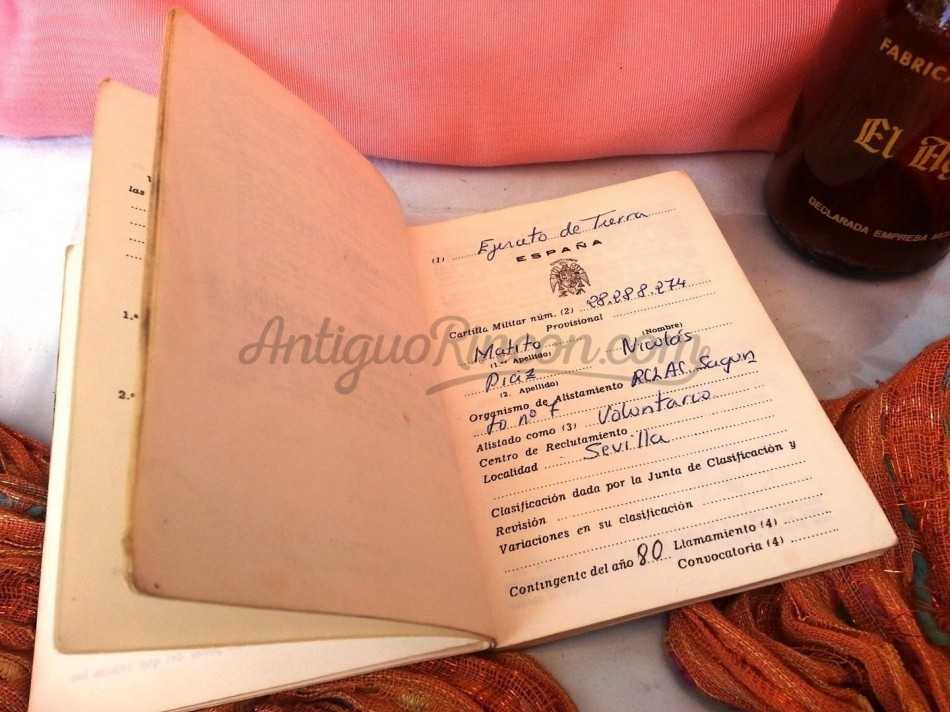 las
1.º
2.º
(1) Ejercito de Tierra
ESPAÑA
Cartilla Militar núm. (2) 28.288.274
Provisional
Matito Nicolás
(1.er Apellido) (Nombre)
Diaz
(2. Apellido)
Organismo de Alistamiento RCLAC. Sagun
to nº 7
Alistado como (3) Voluntario
Centro de Reclutamiento
Localidad Sevilla
Clasificación dada por la Junta de Clasificación y
Revisión
Variaciones en su clasificación
Contingente del año 80 Llamamiento (4)
Convocatoria (4)
AntiguoRincon.com
FABRICA
El
DECLARADA EMPRESA